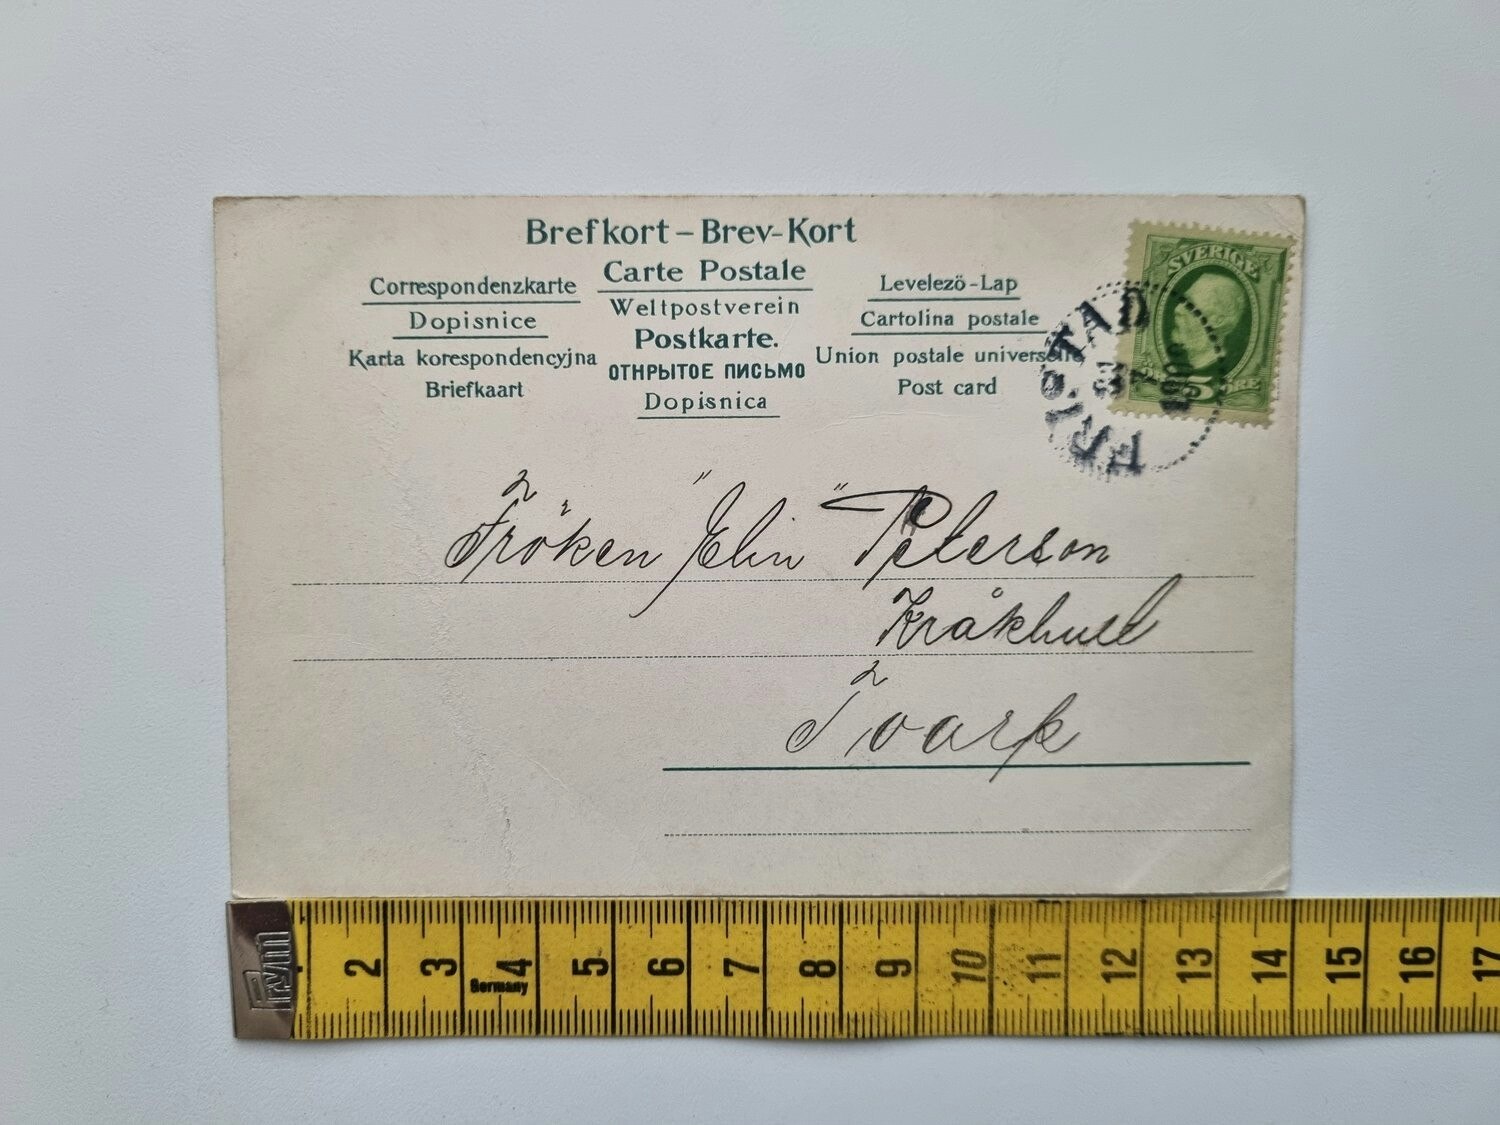 Brefkort – Brev-Kort
Carte Postale
Weltpostverein
Postkarte.
ОТНРЫТОЕ ПИСЬМО
Dopisnica
Correspondenzkarte
Dopisnice
Karta korespondencyjna
Briefkaart
Levelezö-Lap
Cartolina postale
Union postale universelle
Post card
SVERIGE
5 ÖRE
FRISTAD
Fröken "Elin" Peterson
Kråkhult
Tvark
Prym
2 3 4 5 6 7 8 9 10 11 12 13 14 15 16 17
Germany